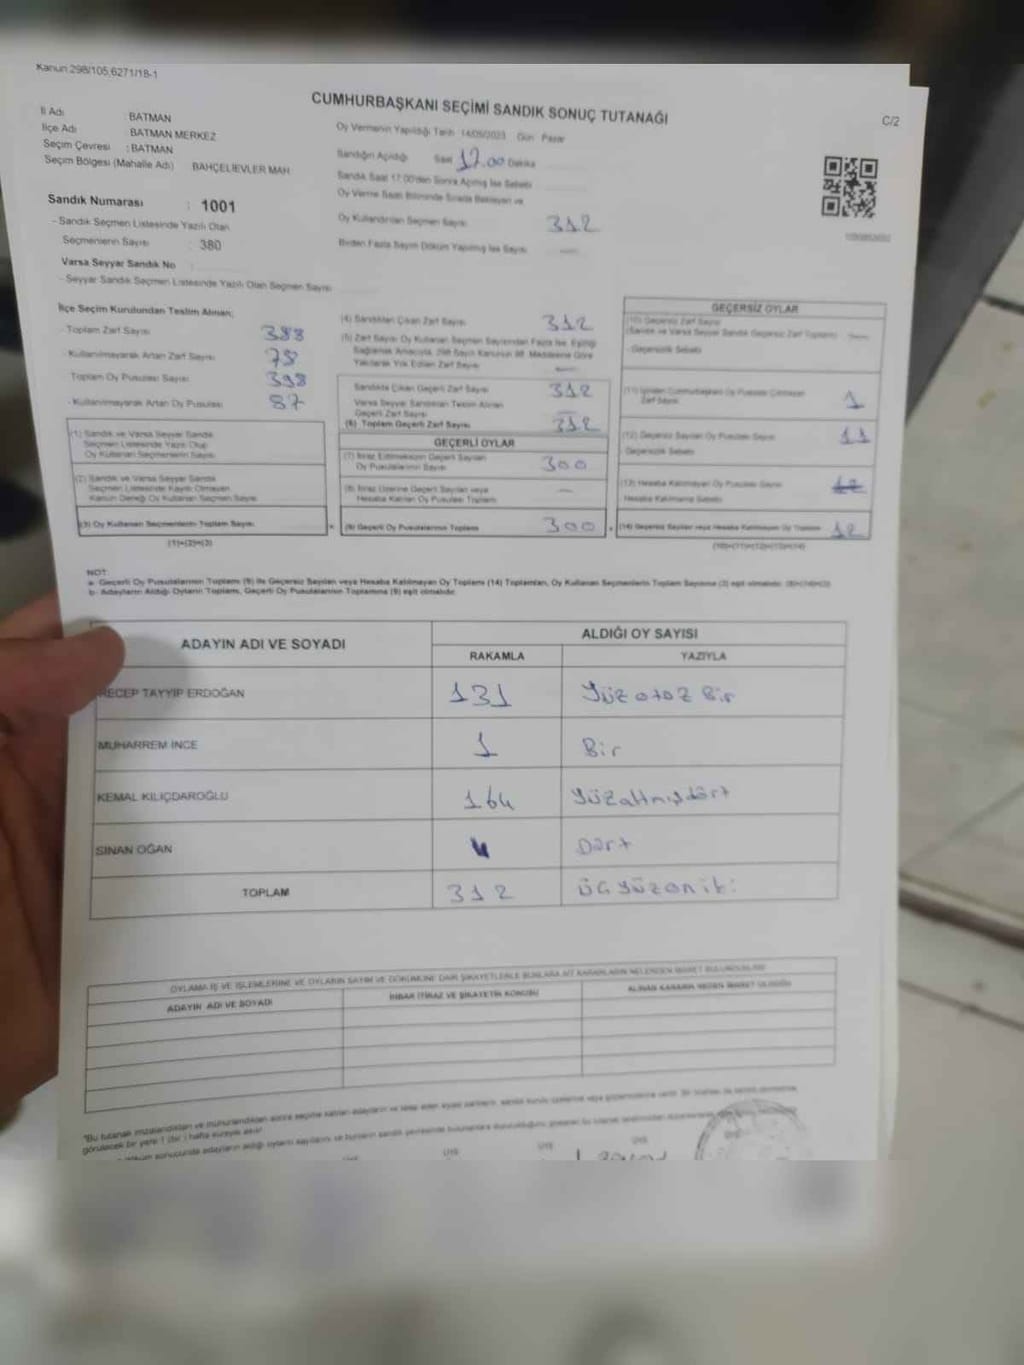 Kanun 298/105,6271/18-1
CUMHURBAŞKANI SEÇİMİ SANDIK SONUÇ TUTANAĞI
C/2
İl Adı : BATMAN
İlçe Adı : BATMAN MERKEZ
Seçim Çevresi : BATMAN
Seçim Bölgesi (Mahalle Adı) BAHÇELİEVLER MAH
Sandık Numarası : 1001
- Sandık Seçmen Listesinde Yazılı Olan
Seçmenlerin Sayısı : 380
Varsa Seyyar Sandık No :
- Seyyar Sandık Seçmen Listesinde Yazılı Olan Seçmen Sayısı
Oy Vermenin Yapıldığı Tarih 14/05/2023 Gün Pazar
Sandığın Açıldığı Saat 17.00 Dakika
Sandık Saat 17:00'den Sonra Açılmış İse Sebebi
Oy Verme Saati Bitiminde Sırada Bekleyen ve
Oy Kullandırılan Seçmen Sayısı 312
Birden Fazla Sayım Döküm Yapılmış İse Sayısı —
İlçe Seçim Kurulundan Teslim Alınan;
- Toplam Zarf Sayısı 388
- Kullanılmayarak Artan Zarf Sayısı 78
Toplam Oy Pusulası Sayısı 398
- Kullanılmayarak Artan Oy Pusulası 87
(1) Sandık ve Varsa Seyyar Sandık
Seçmen Listesinde Yazılı Olup
Oy Kullanan Seçmenlerin Sayısı
(2) Sandık ve Varsa Seyyar Sandık
Seçmen Listesinde Kayıtlı Olmayan
Kanun Gereği Oy Kullanan Seçmen Sayısı
(3) Oy Kullanan Seçmenlerin Toplam Sayısı
(1)+(2)=(3)
(4) Sandıktan Çıkan Zarf Sayısı 312
(5) Zarf Sayısı Oy Kullanan Seçmen Sayısından Fazla İse, Eşitliği
Sağlamak Amacıyla, 298 Sayılı Kanunun 98. Maddesine Göre
Yakılarak Yok Edilen Zarf Sayısı —
Sandıkta Çıkan Geçerli Zarf Sayısı 312
Varsa Seyyar Sandıktan Teslim Alınan
Geçerli Zarf Sayısı —
(6) Toplam Geçerli Zarf Sayısı 312
GEÇERLİ OYLAR
(7) İtiraz Edilmeksizin Geçerli Sayılan
Oy Pusulalarının Sayısı 300
(8) İtiraz Üzerine Geçerli Sayılan veya
Hesaba Katılan Oy Pusulaları Toplamı —
(9) Geçerli Oy Pusulalarının Toplamı 300
GEÇERSİZ OYLAR
(10) Geçersiz Zarf Sayısı
(Sandık ve Varsa Seyyar Sandık Geçersiz Zarf Toplamı) —
- Geçersizlik Sebebi
Zarf Sayısı 1
(12) Geçersiz Sayılan Oy Pusulası Sayısı 11
Geçersizlik Sebebi
(13) Hesaba Katılmayan Oy Pusulası Sayısı 12
Hesaba Katılmama Sebebi
(14) Geçersiz Sayılan veya Hesaba Katılmayan Oy Toplamı 12
(10)+(11)+(12)+(13)=(14)
NOT:
a- Geçerli Oy Pusulalarının Toplamı (9) ile Geçersiz Sayılan veya Hesaba Katılmayan Oy Toplamı (14) Toplamları, Oy Kullanan Seçmenlerin Toplam Sayısına (3) eşit olmalıdır. (9)+(14)=(3)
b- Adayların Aldığı Oyların Toplamı, Geçerli Oy Pusulalarının Toplamına (9) eşit olmalıdır.
ADAYIN ADI VE SOYADI
ALDIĞI OY SAYISI
RAKAMLA YAZIYLA
RECEP TAYYİP ERDOĞAN 131 Yüz otoz Bir
MUHARREM İNCE 1 Bir
KEMAL KILIÇDAROĞLU 164 Yüzaltmışdört
SİNAN OĞAN 4 Dört
TOPLAM 312 üçyüzoniki
OYLAMA İŞ VE İŞLEMLERİNE VE OYLARIN SAYIM VE DÖKÜMÜNE DAİR ŞİKAYETLERLE BUNLARA AİT KARARLARIN NELERDEN İBARET BULUNDUKLARI
ADAYIN ADI VE SOYADI
İHBAR İTİRAZ VE ŞİKAYETİN KONUSU
ALINAN KARARIN NEDEN İBARET OLDUĞU